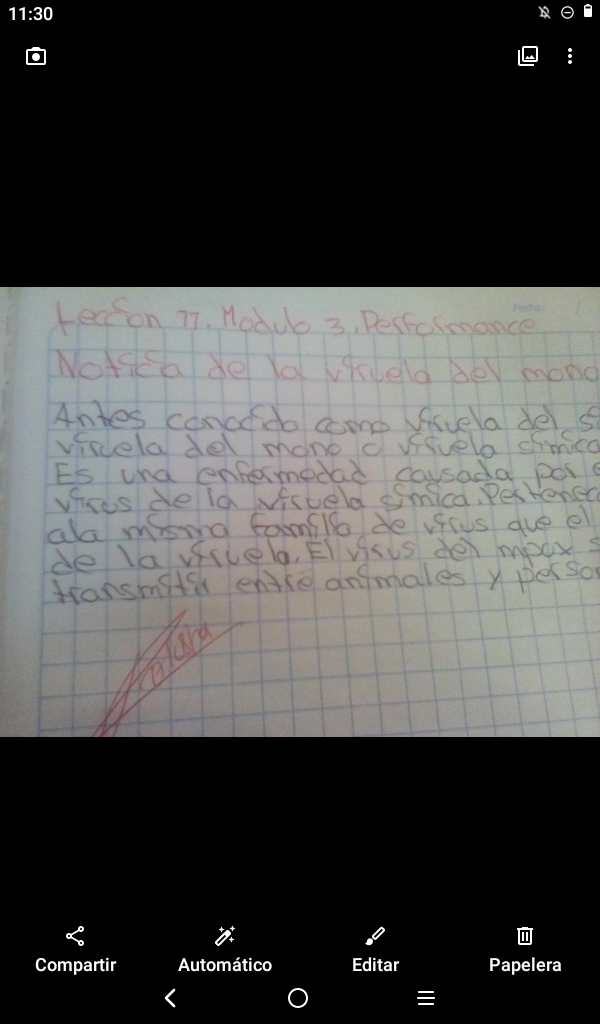 11:30
Fecha:
Leccion 11. Modulo 3. Performance
Noticia de la viruela del mono
Antes conocido como viruela del si
viruela del mono o viruela simica
Es una enfermedad causada por e
virus de la viruela simica. Pertenec
ala misma familia de virus que el
de la viruela. El virus del mpox s
transmitir entre animales y perso
Compartir
Automático
Editar
Papelera